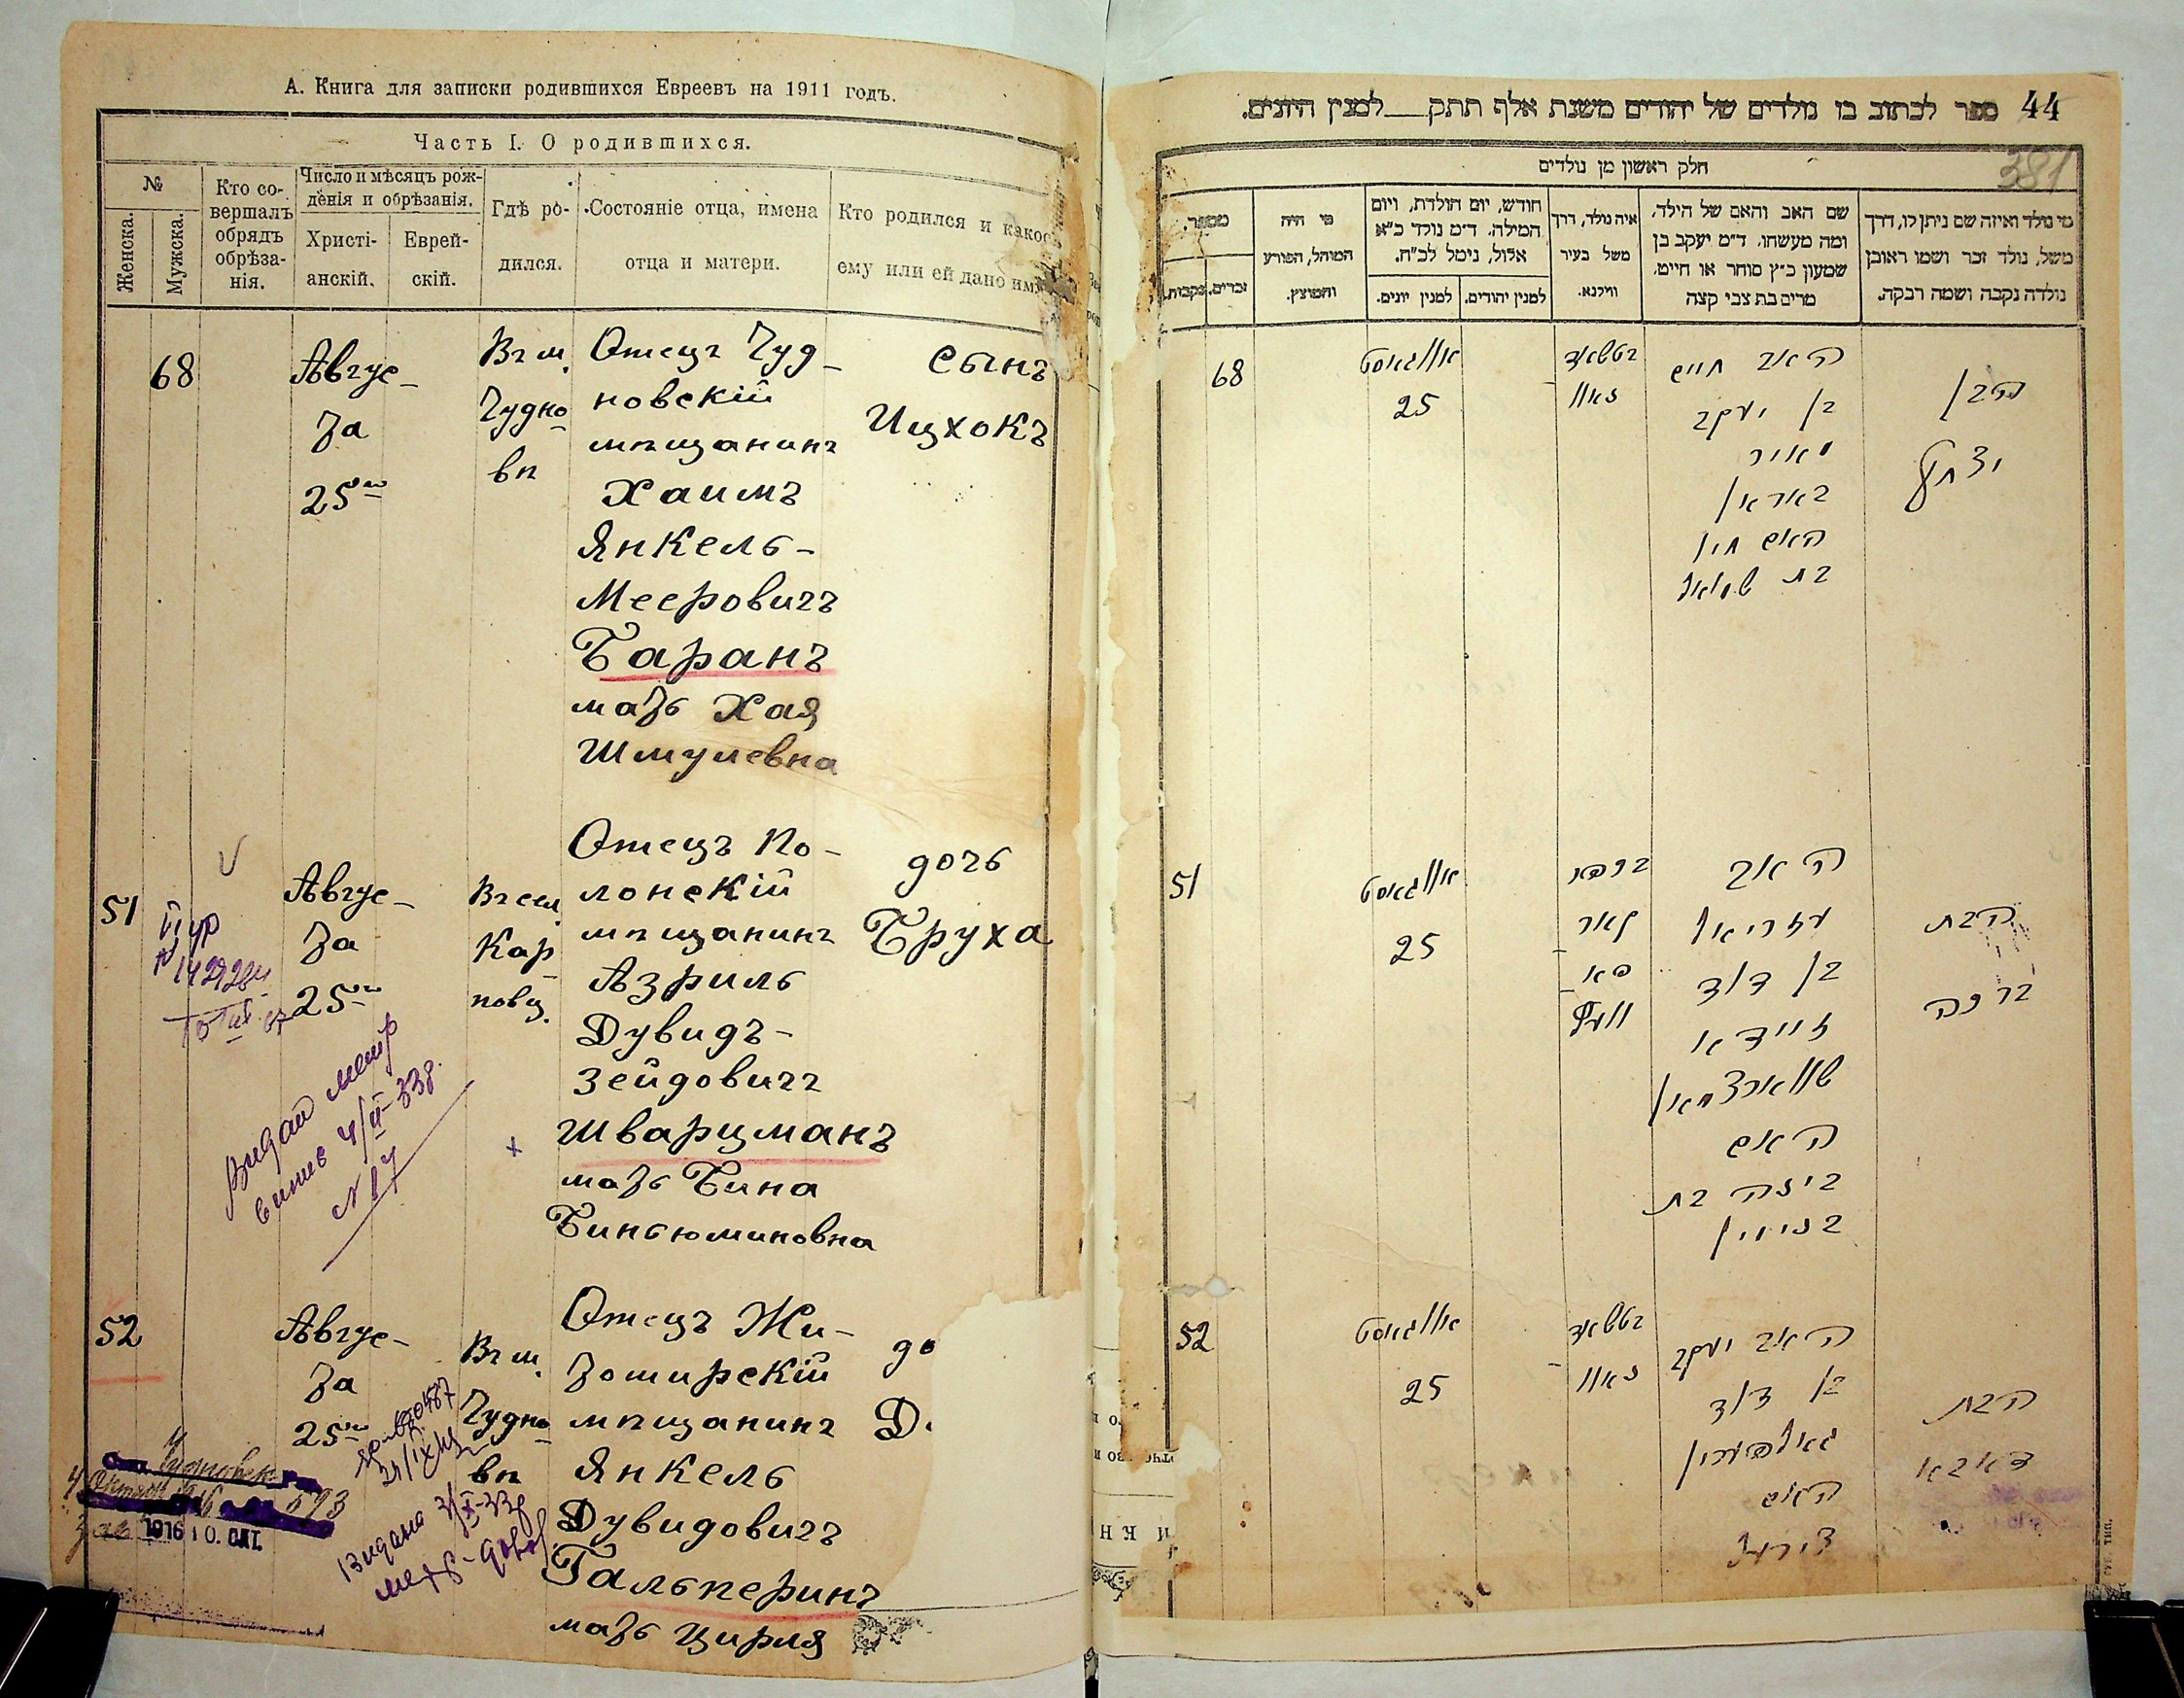 А. Книга для записки родившихся Евреевъ на 1911 годъ.
Часть I. О родившихся.
№
Женска.
Мужска.
Кто со-
вершалъ
обрядъ
обрѣза-
нія.
Число и мѣсяцъ рож-
денія и обрѣзанія.
Христі-
анскій.
Еврей-
скій.
Гдѣ ро-
дился.
Состояніе отца, имена
отца и матери.
Кто родился и какое
ему или ей дано имя
68
Авгус-
та
25го
Въ м.
Чудно-
вѣ
Отецъ Чуд-
новскій
мѣщанинъ
Хаимъ
Янкель-
Мееровичъ
Баранъ
мать Хая
Шмулевна
сынъ
Ицхокъ
51
Авгус-
та
25го
В сел.
Кар-
повц.
Отецъ По-
лонскій
мѣщанинъ
Азриль
Дувидъ-
Зейдовичъ
Шварцманъ
мать Бина
Биньюминовна
дочь
Бруха
52
Авгус-
та
25го
Въ м.
Чудно-
вѣ
Отецъ Жи-
томирскій
мѣщанинъ
Янкель
Дувидовичъ
Гальперинъ
мать Цирля
до
Д
1916 10. ОКТ.
44
ספר לכתוב בו נולדים של יהודים משנת אלף תתק___למנין היונים.
381
חלק ראשון מן נולדים
מספר.
נקבות.
זכרים.
מי היה
המוהל, הפורע
והמוצץ.
חודש, יום הולדת, ויום
המילה. ד״מ נולד כ״א
אלול, נימל לכ״ח.
למנין יונים.
למנין יהודים.
איה נולד, דרך
משל בעיר
ווילנא.
שם האב והאם של הילד,
ומה מעשהו. ד״מ יעקב בן
שמעון כ״ץ סוחר או חייט,
מרים בת צבי קצה
מי נולד ואיזה שם ניתן לו, דרך
משל, נולד זכר ושמו ראובן
נולדה נקבה ושמה רבקה.
68
אווגאוסט
25
האב חיים
בן יעקב
מאיר
באראן
האם חי׳
בת שמואל
הבן
יצחק
51
אווגאוסט
25
האב
עזריאל
בן דוד
זיידא
שווארצמאן
האם
בינה בת
בנימין
הבת
ברכה
52
אווגאוסט
25
האב יעקב
בן דוד
גאלפערין
האם
צירל
הבת
דאבא